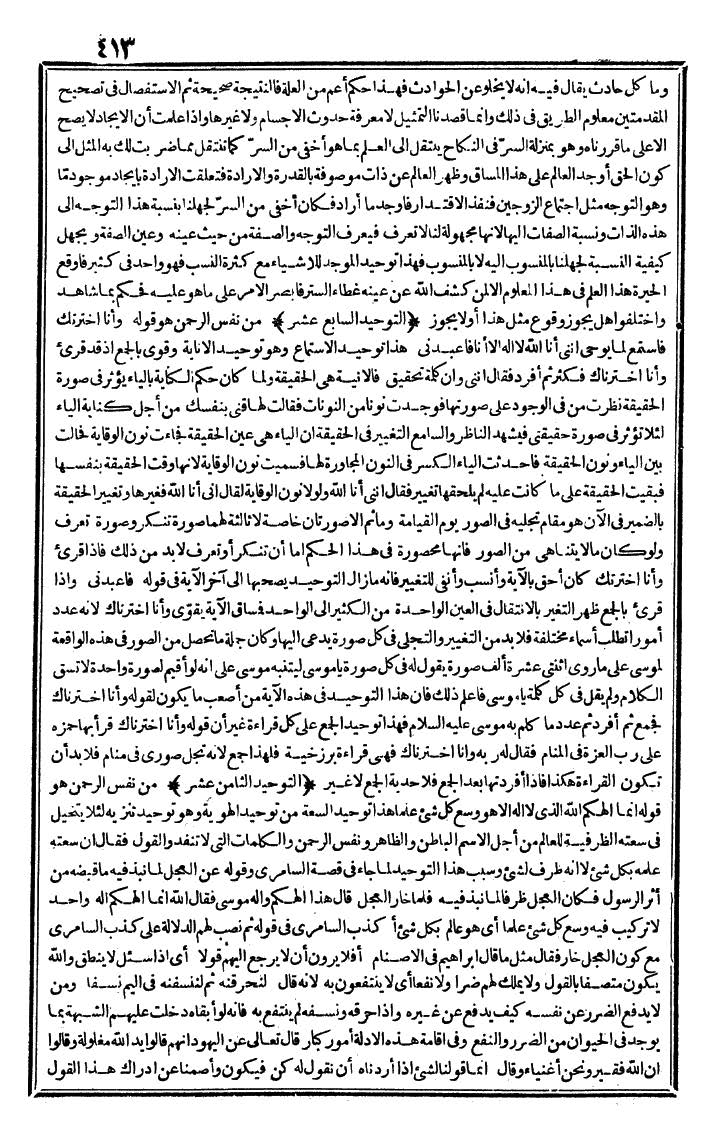 ٤١٣
وما كل حادث يقال فيه انه لا يخلو عن الحوادث فهذا حكم أعم من العلة فالنتيجة صحيحة ثم الاستفصال فى تصحيح
المقدمتين معلوم الطريق فى ذلك وانما قصدنا التمثيل لا معرفة حدوث الاجسام ولا غيرها واذا علمت أن الايجاد لا يصح
الا على ما قررناه وهو بمنزلة السرّ فى النكاح ينتقل الى العلم بما هو أخفى من السرّ كما ننتقل مما ضربت لك به المثل الى
كون الحق أوجد العالم على هذا المساق وظهر العالم عن ذات موصوفة بالقدرة والارادة فتعلقت الارادة بايجاد موجود مّا
وهو التوجه مثل اجتماع الزوجين فنفذ الاقتدار فأوجد ما أراد فكان أخفى من السرّ لجهلنا بنسبة هذا التوجه الى
هذه الذات ونسبة الصفات اليها لانها مجهولة لنا لا تعرف فيعرف التوجه والصفة من حيث عينه وعين الصفة ويجهل
كيفية النسبة لجهلنا بالمنسوب اليه لا بالمنسوب فهذا توحيد الموجد للاشياء مع كثرة النسب فهو واحد فى كثير فأوقع
الحيرة هذا العلم فى هذا المعلوم الا لمن كشف الله عن عينه غطاء الستر فأبصر الامر على ما هو عليه فحكم بما شاهد
واختلفوا هل يجوز وقوع مثل هذا أو لا يجوز ﴿التوحيد السابع عشر﴾ من نفس الرحمن هو قوله وأنا اخترتك
فاستمع لما يوحى اننى أنا الله لا اله الا أنا فاعبدنى هذا توحيد الاستماع وهو توحيد الانابة وقوى بالجمع اذ قد قرئ
وأنا اخترناك فكثر ثم أفرد فقال اننى وان كلمة تحقيق فالانية هى الحقيقة ولما كان حكم الكناية بالياء يؤثر فى صورة
الحقيقة نظرت من فى الوجود على صورتها فوجدت نونا من النونات فقالت لها قنى بنفسك من أجل كناية الياء
لئلا تؤثر فى صورة حقيقتى فيشهد الناظر والسامع التغيير فى الحقيقة ان الياء هى عين الحقيقة فجاءت نون الوقاية فحالت
بين الياء ونون الحقيقة فأحدثت الياء الكسر فى النون المجاورة لها فسميت نون الوقاية لانها وقت الحقيقة بنفسها
فبقيت الحقيقة على ما كانت عليه لم يلحقها تغيير فقال اننى أنا الله ولولا نون الوقاية لقال انى أنا الله فغيرها وتغيير الحقيقة
بالضمير فى الآن هو مقام تجليه فى الصور يوم القيامة وما ثم الا صورتان خاصة لا ثالثة لهما صورة تنكر وصورة تعرف
ولو كان ما لا يتناهى من الصور فانها محصورة فى هذا الحكم اما أن تنكر أو تعرف لا بد من ذلك فاذا قرئ
وأنا اخترتك كان أحق بالآية وأنسب وأنفى للتغيير فانه ما زال التوحيد يصحبها الى آخر الآية فى قوله فاعبدنى واذا
قرئ بالجمع ظهر التغير بالانتقال فى العين الواحدة من الكثير الى الواحد فساق الآية يقوّى وأنا اخترناك لانه عدد
أمورا تطلب أسماء مختلفة فلا بد من التغيير والتجلى فى كل صورة يدعى اليها وكان جملة ما تحصل من الصور فى هذه الواقعة
لموسى على ما روى اثنتى عشرة ألف صورة يقول له فى كل صورة يا موسى ليتنبه موسى على انه لو أقيم لصورة واحدة لاتسق
الكلام ولم يقل فى كل كلمة يا موسى فاعلم ذلك فان هذا التوحيد فى هذه الآية من أصعب ما يكون لقوله وأنا اخترناك
فجمع ثم أفرد ثم عدد ما كلم به موسى عليه السلام فهذا توحيد الجمع على كل قراءة غير أن قوله وأنا اخترناك قرأ بها حمزة
على رب العزة فى المنام فقال له ربه وانا اخترناك فهى قراءة برزخية فلهذا جمع لانه تجل صورى فى منام فلا بد أن
تكون القراءة هكذا فاذا أفردتها بعد الجمع فلاحدية الجمع لا غير ﴿التوحيد الثامن عشر﴾ من نفس الرحمن هو
قوله انما الهكم الله الذى لا اله الا هو وسع كل شئ علما هذا توحيد السعة من توحيد الهوية وهو توحيد تنزيه لئلا يتخيل
فى سعته الظرفية للعالم من أجل الاسم الباطن والظاهر ونفس الرحمن والكلمات التى لا تنفد والقول فقال ان سعته
علمه بكل شئ لا انه ظرف لشئ وسبب هذا التوحيد لما جاء فى قصة السامرى وقوله عن العجل لما نبذ فيه ما قبضه من
أثر الرسول فكان العجل ظرفا لما نبذ فيه فلما خار العجل قال هذا الهكم واله موسى فقال الله انما الهكم اله واحد
لا تركيب فيه وسع كل شئ علما أى هو عالم بكل شئ أكذب السامرى فى قوله ثم نصب لهم الدلالة على كذب السامرى
مع كون العجل خار فقال مثل ما قال ابراهيم فى الاصنام أفلا يرون أن لا يرجع اليهم قولا أى اذا سئل لا ينطق والله
يكون متصفا بالقول ولا يملك لهم ضرا ولا نفعا أى لا ينتفعون به لانه قال لنحرقنه ثم لننسفنه فى اليم نسفا ومن
لا يدفع الضرر عن نفسه كيف يدفع عن غيره واذا حرقه ونسفه لم ينتفع به فانه لو أبقاه دخلت عليهم الشبهة بما
يوجد فى الحيوان من الضرر والنفع وفى اقامة هذه الادلة أمور كبار قال تعالى عن اليهود انهم قالوا يد الله مغلولة وقالوا
ان الله فقير ونحن أغنياء وقال انما قولنا لشئ اذا أردناه أن نقول له كن فيكون وأصمنا عن ادراك هذا القول